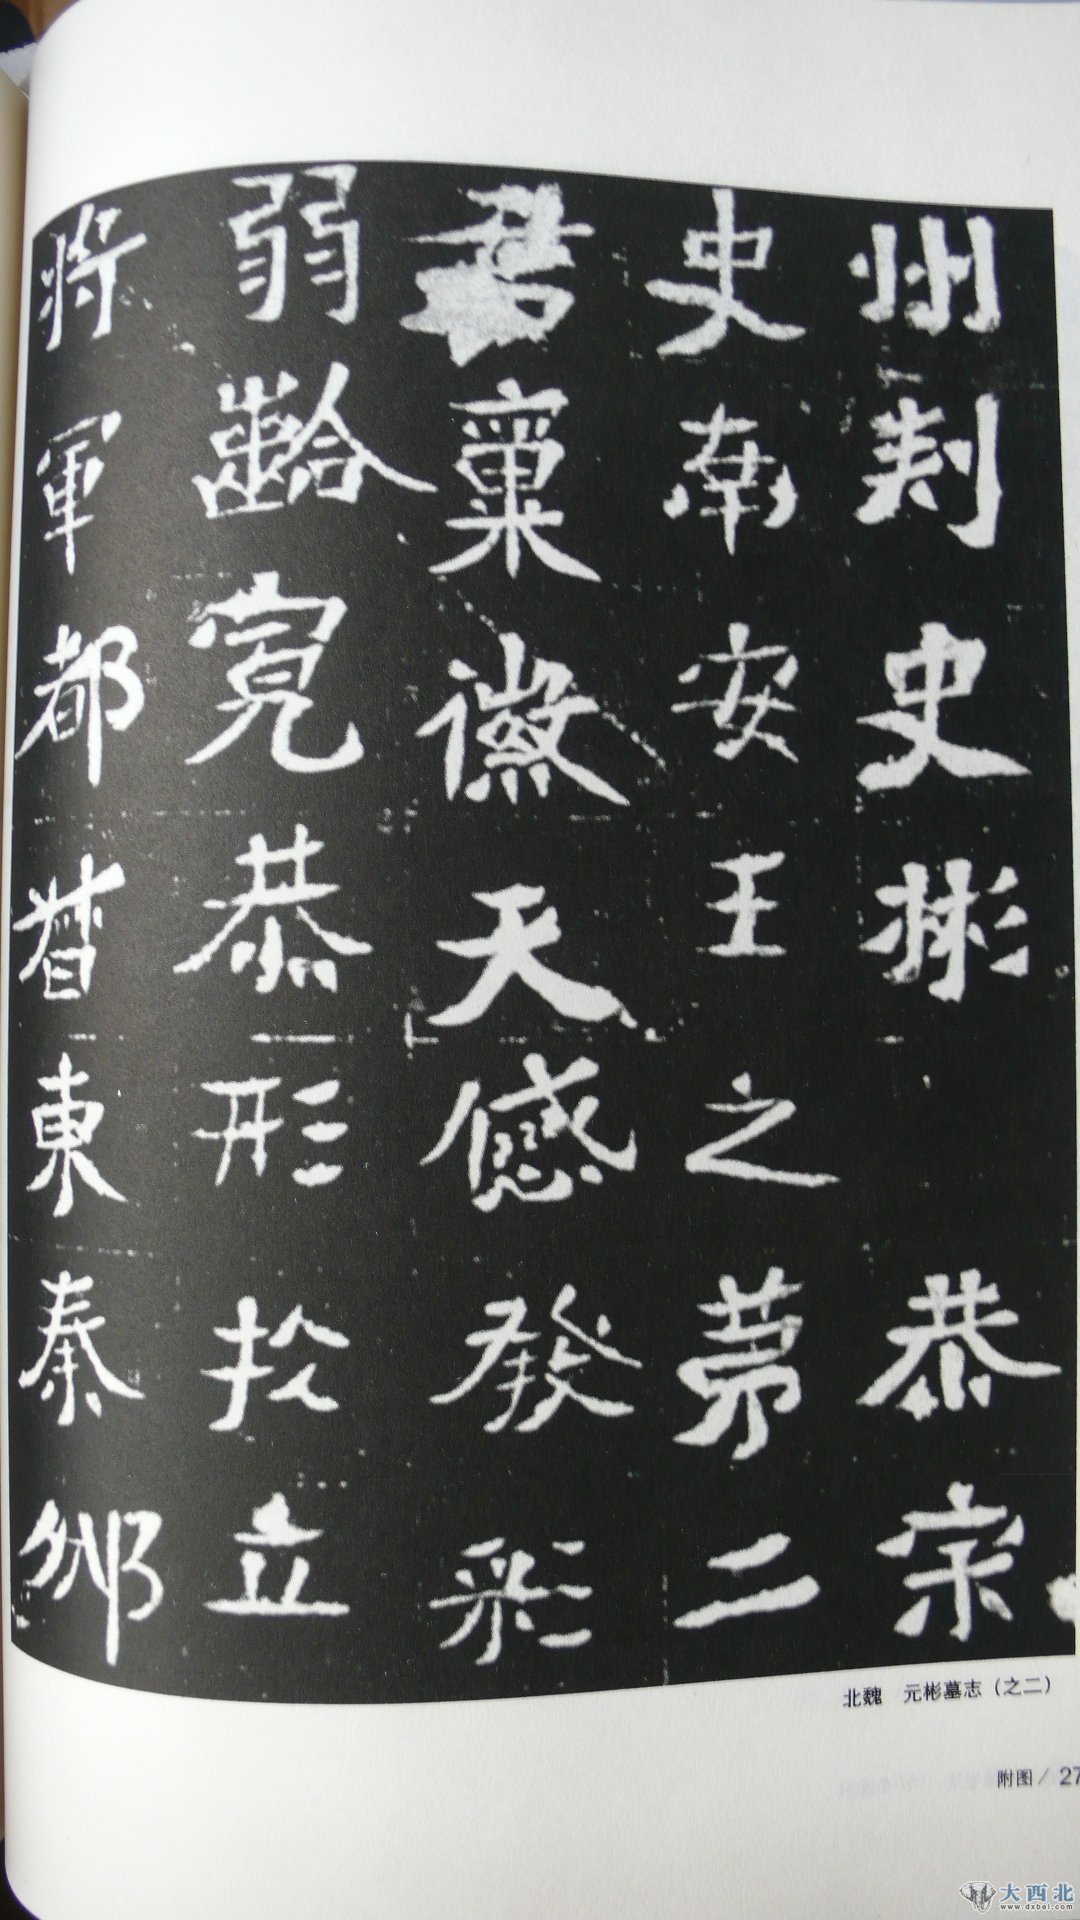 州刺史彬 恭宗
史南安王之第二
君稟徽天感發彩
弱齡寬恭形於立
將軍都督東秦邠
北魏 元彬墓志（之二）
附图/27
大西北
www.dxbei.com